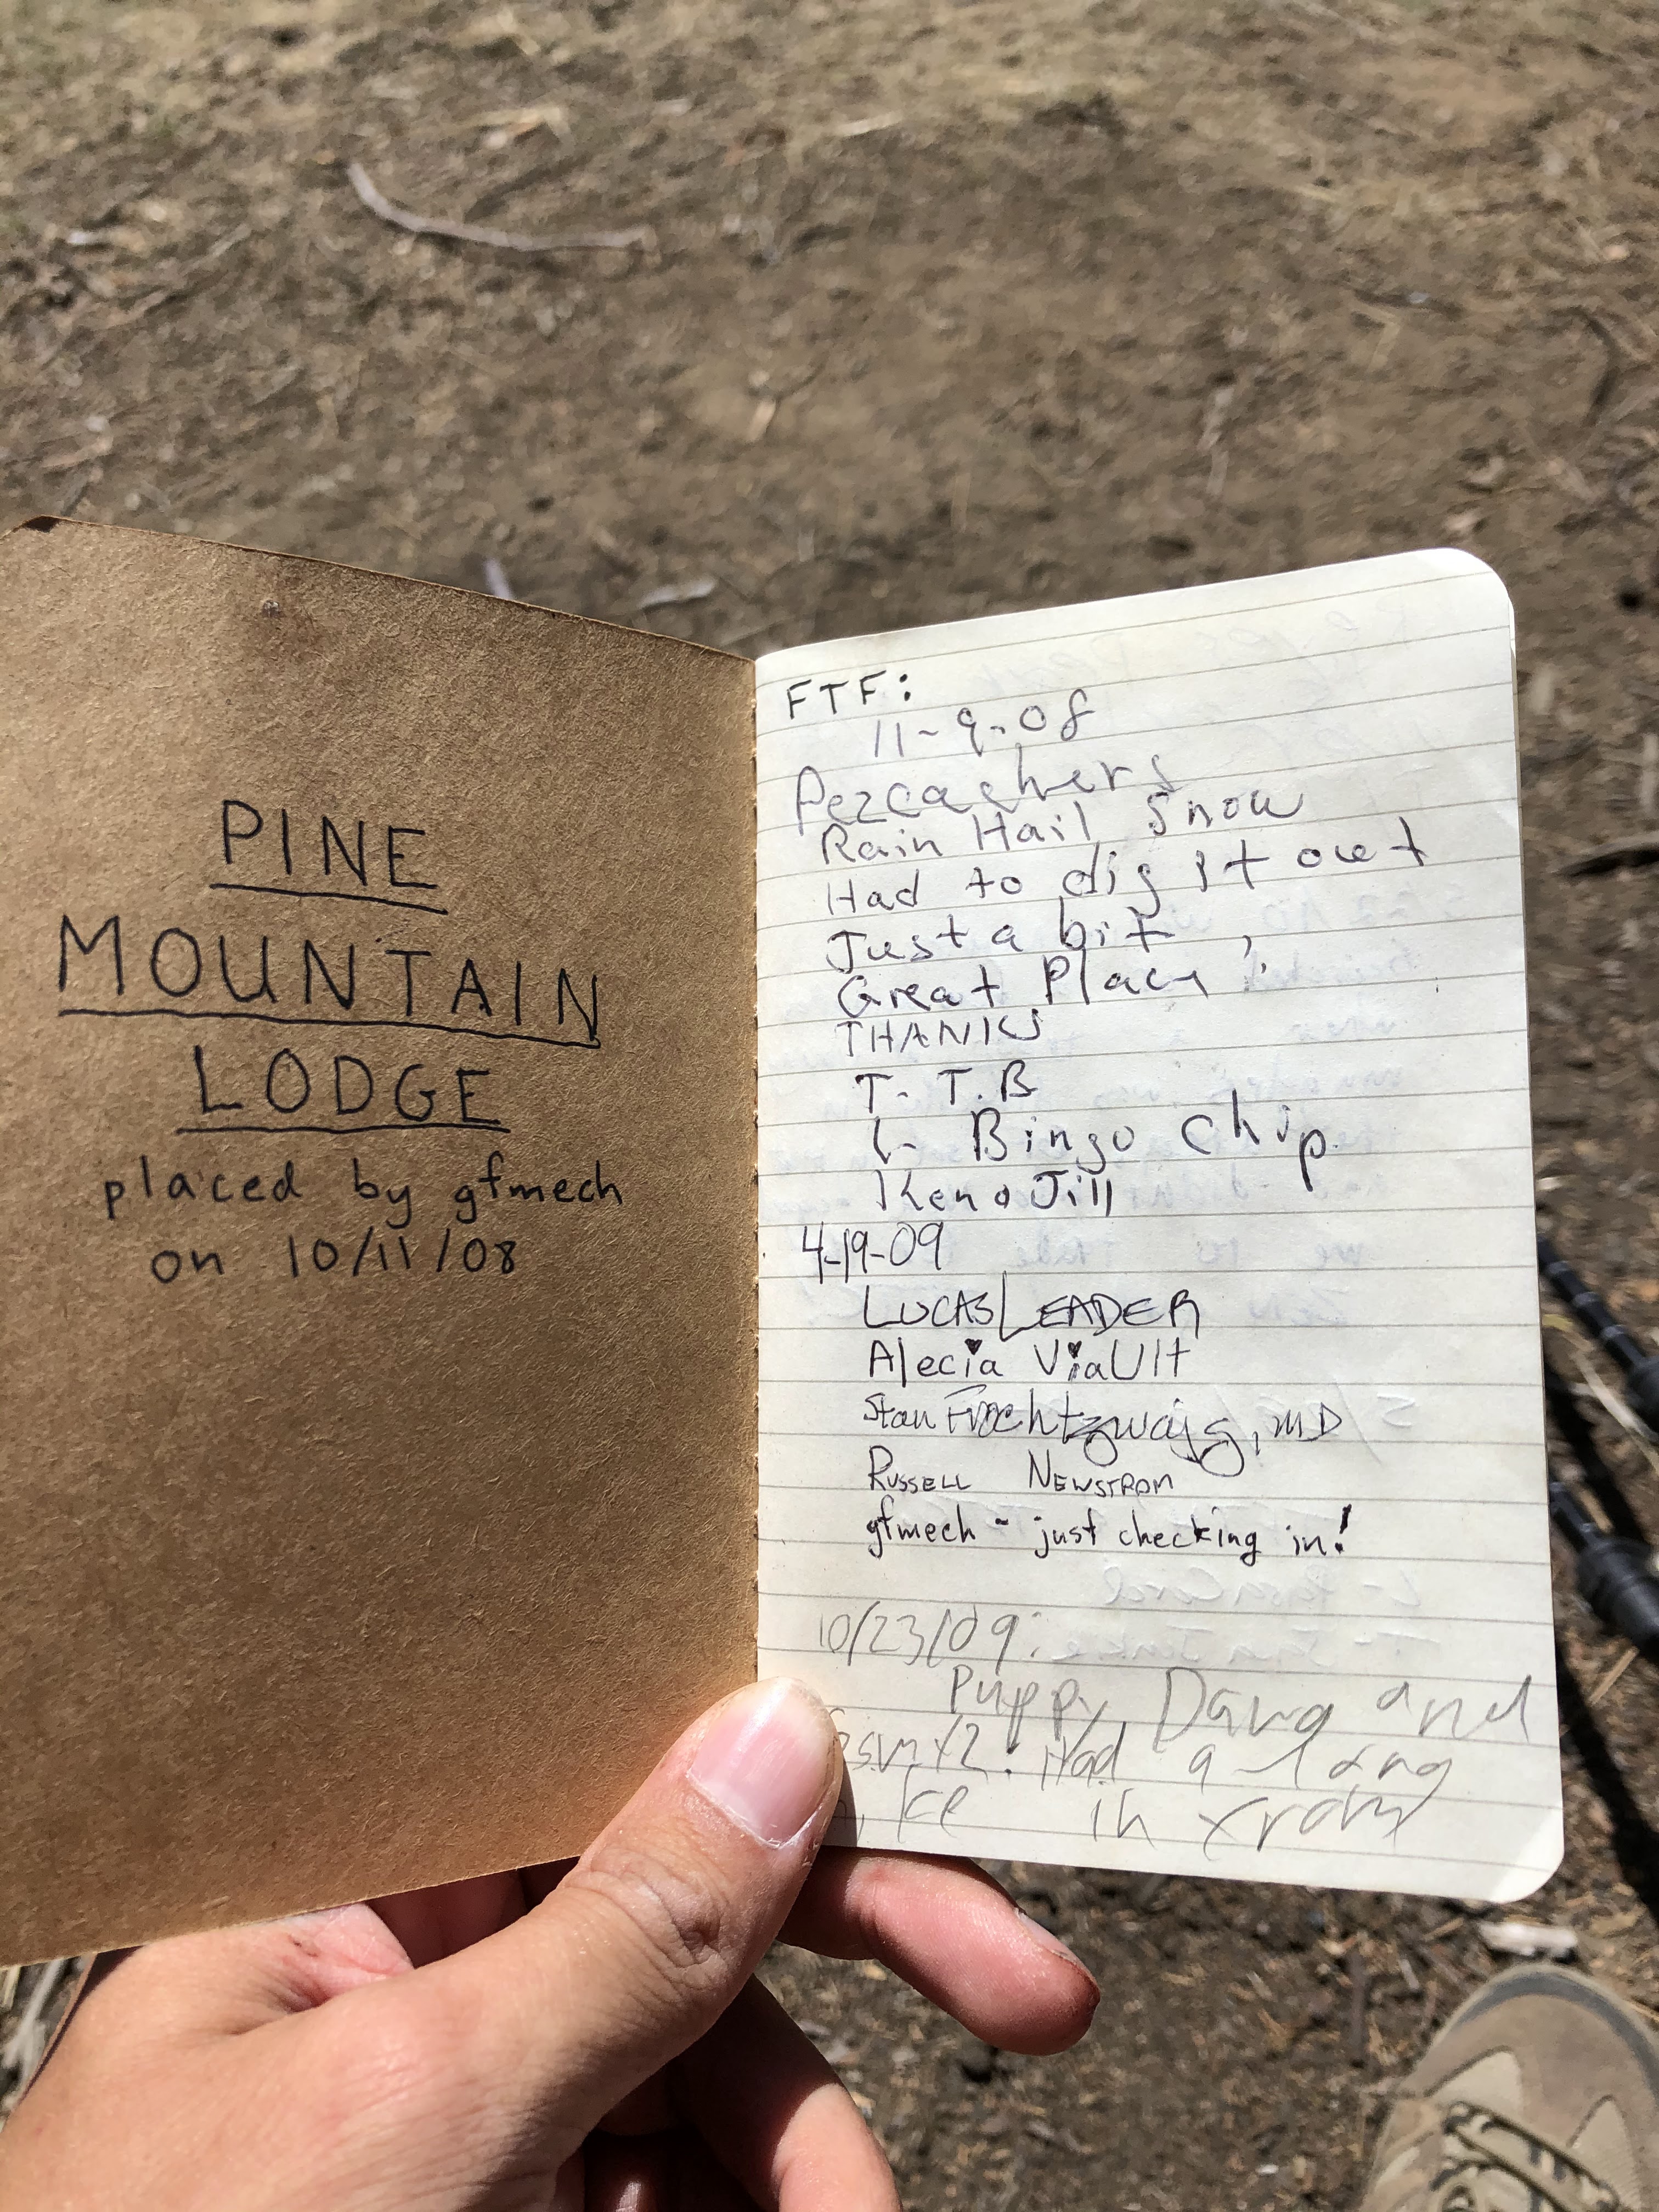 PINE
MOUNTAIN
LODGE
placed by gfmech
on 10/11/08
FTF:
11-9-08
Pezcashers
Rain Hail Snow
Had to dig it out
Just a bit,
Great Place
THANKS
T- T.B
L- Bingo Chip
Keno Jill
4-19-09
LUCAS LEADER
Alecia ViaUlt
Stan Frachtzwajg, MD
RUSSELL NEWSTROM
gfmech - just checking in!
10/23/09:
Puppy Dawg and
Had a long
in from